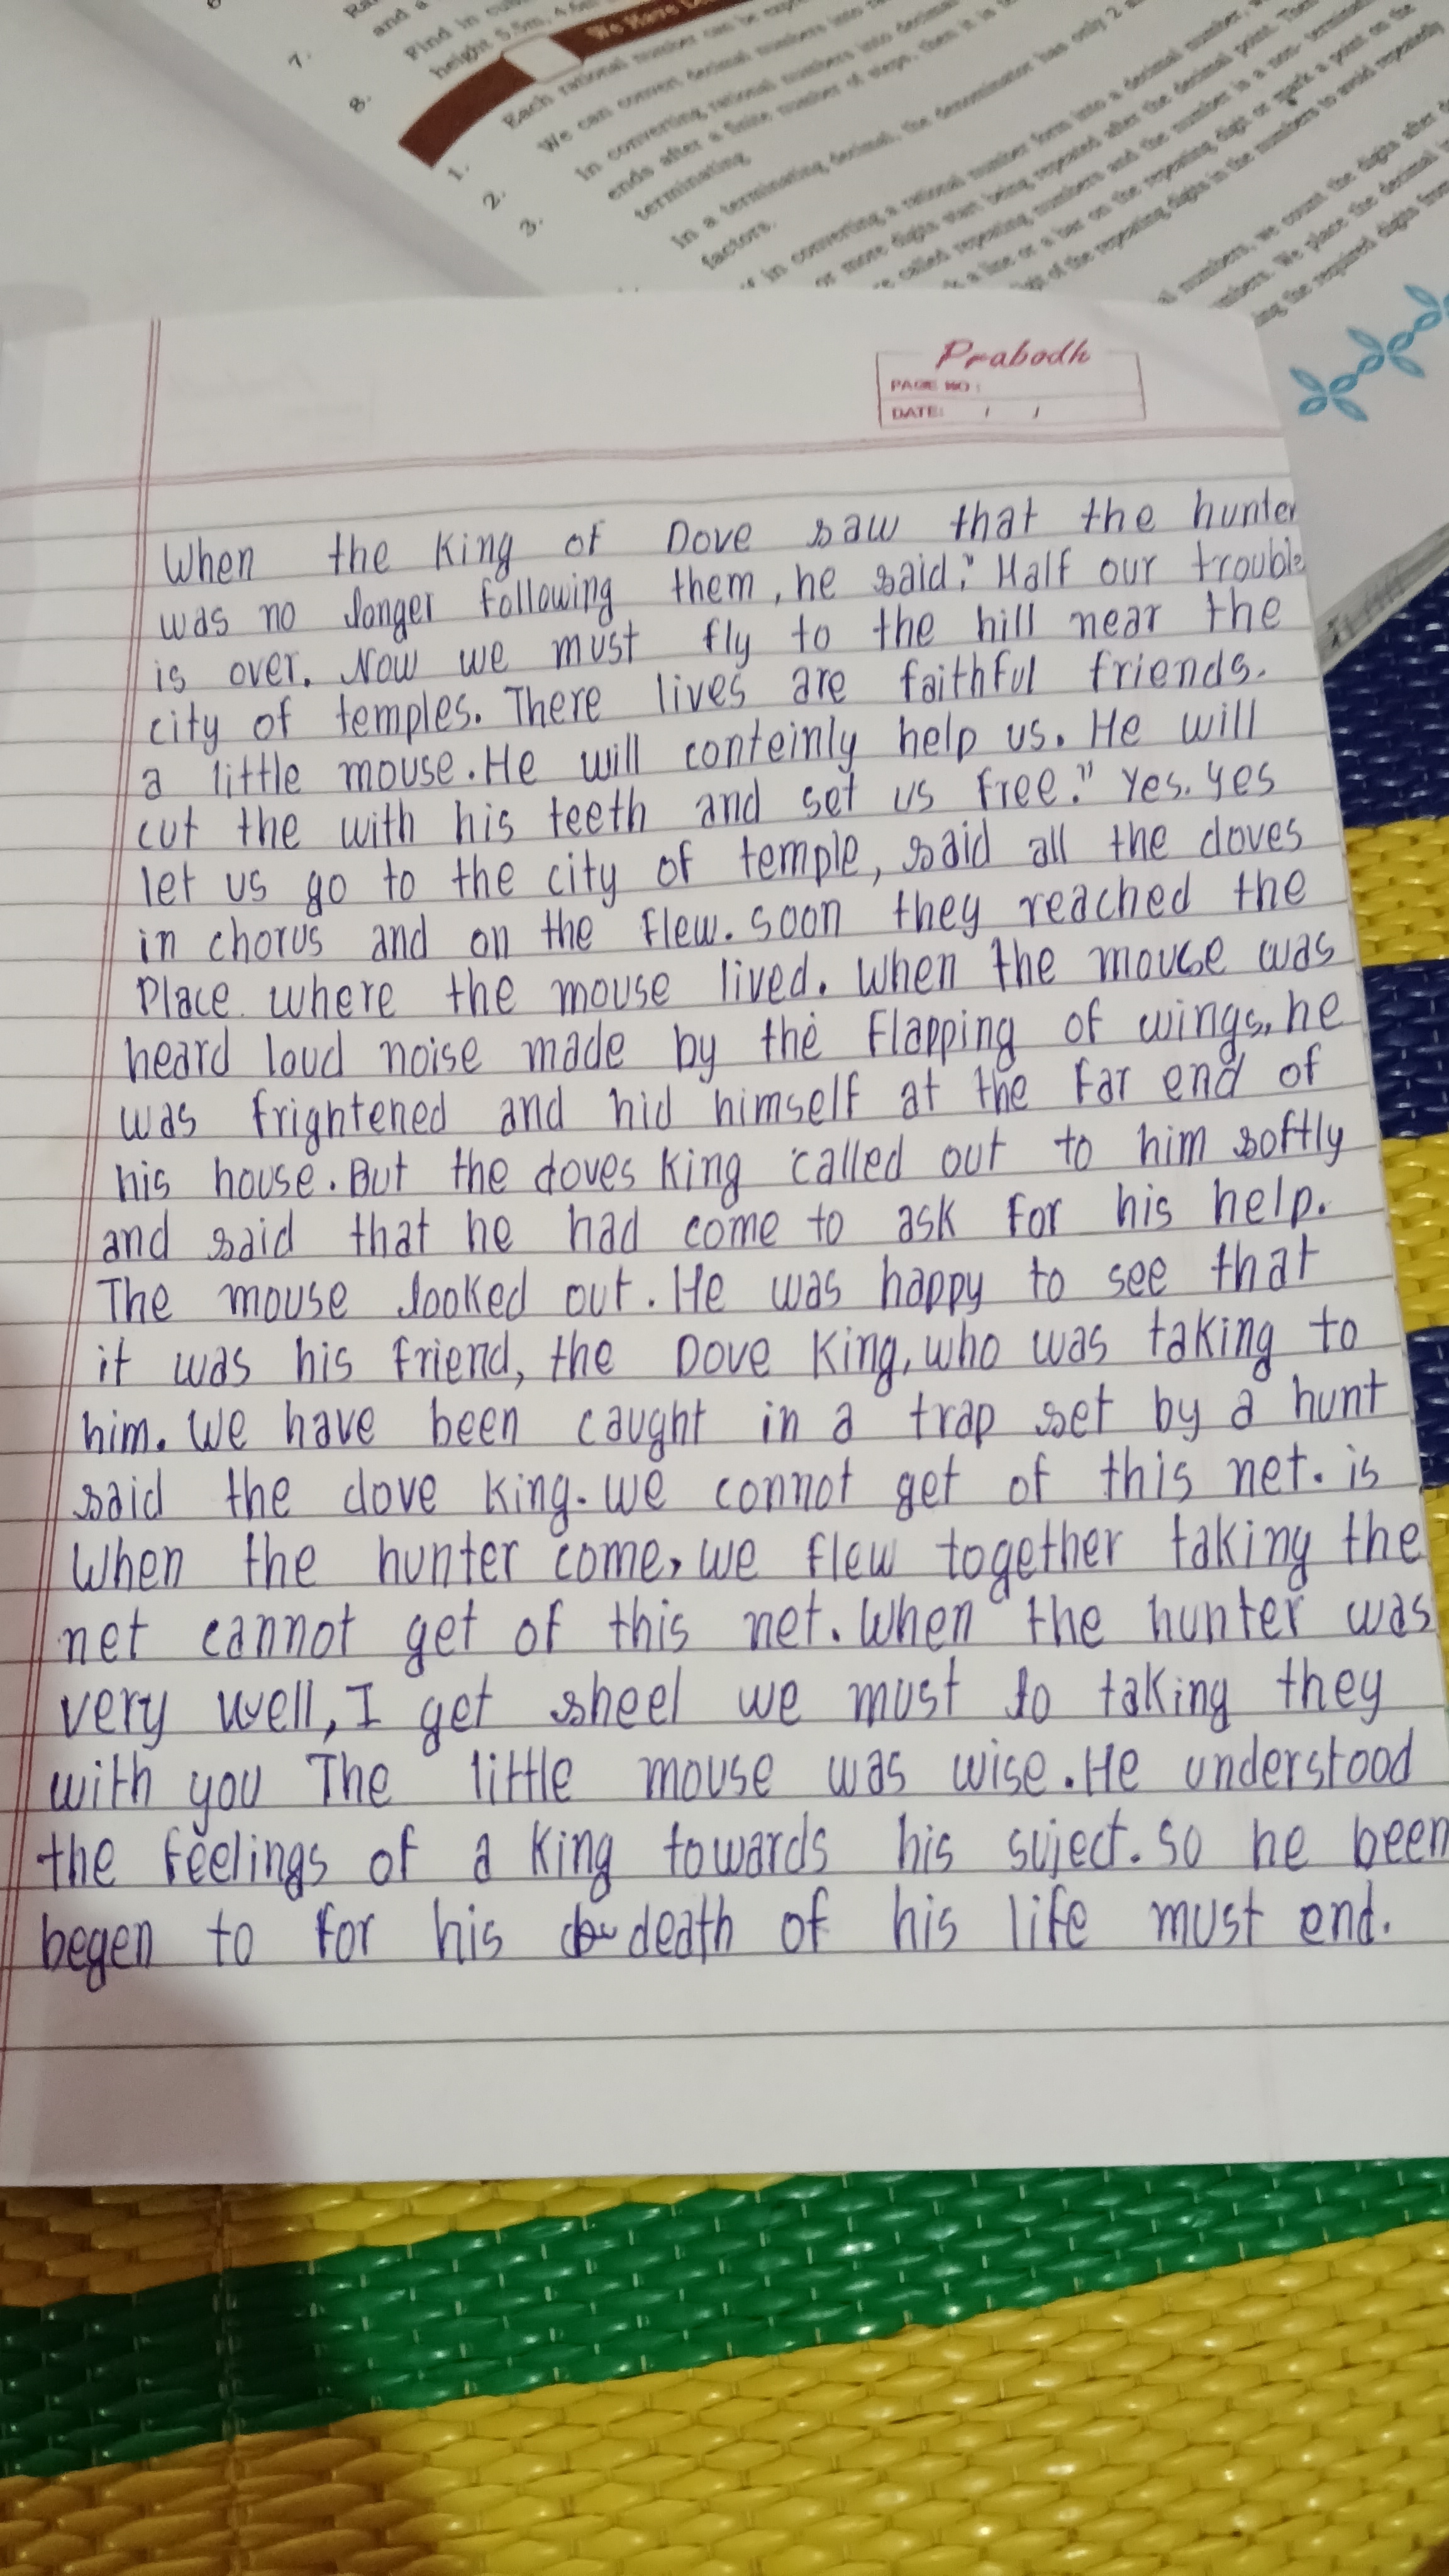 7.
and a
8.
Find in
height 5.5m, 4.6m
We Have
1.
Each rational number can be
2.
We can convert decimal numbers into
3.
In converting rational numbers into decimal
ends after a finite number of steps, then it is
terminating.
In a terminating decimal, the denominator has only 2
factors.
in converting a rational number form into a decimal number,
or more digits start being repeated after the decimal point.
called repeating numbers and the number is a non-
a line or a bar on the repeating digit or mark a point on the
of the repeating digits in the numbers to avoid
numbers, we count the digits after
We place the decimal
the required digits from
Prabodh
PAGE NO:
DATE: / /
When the King of Dove saw that the hunter
was no longer following them, he said," Half our trouble
is over. Now we must fly to the hill near the
city of temples. There lives are faithful friends.
a little mouse. He will conteinly help us. He will
cut the with his teeth and set us free." Yes. yes
let us go to the city of temple, said all the doves
in chorus and on the flew. soon they reached the
Place where the mouse lived. When the mouse was
heard loud noise made by the flapping of wings, he
was frightened and hid himself at the far end of
his house. But the doves King called out to him softly
and said that he had come to ask for his help.
The mouse looked out. He was happy to see that
it was his friend, the Dove King, who was taking to
him. We have been caught in a trap set by a hunt
said the dove King. we connot get of this net. is
When the hunter come, we flew together taking the
net cannot get of this net. When the hunter was
very well, I get sheel we must to taking they
with you The little mouse was wise. He understood
the feelings of a King towards his suject. so he been
begen to for his death of his life must end.